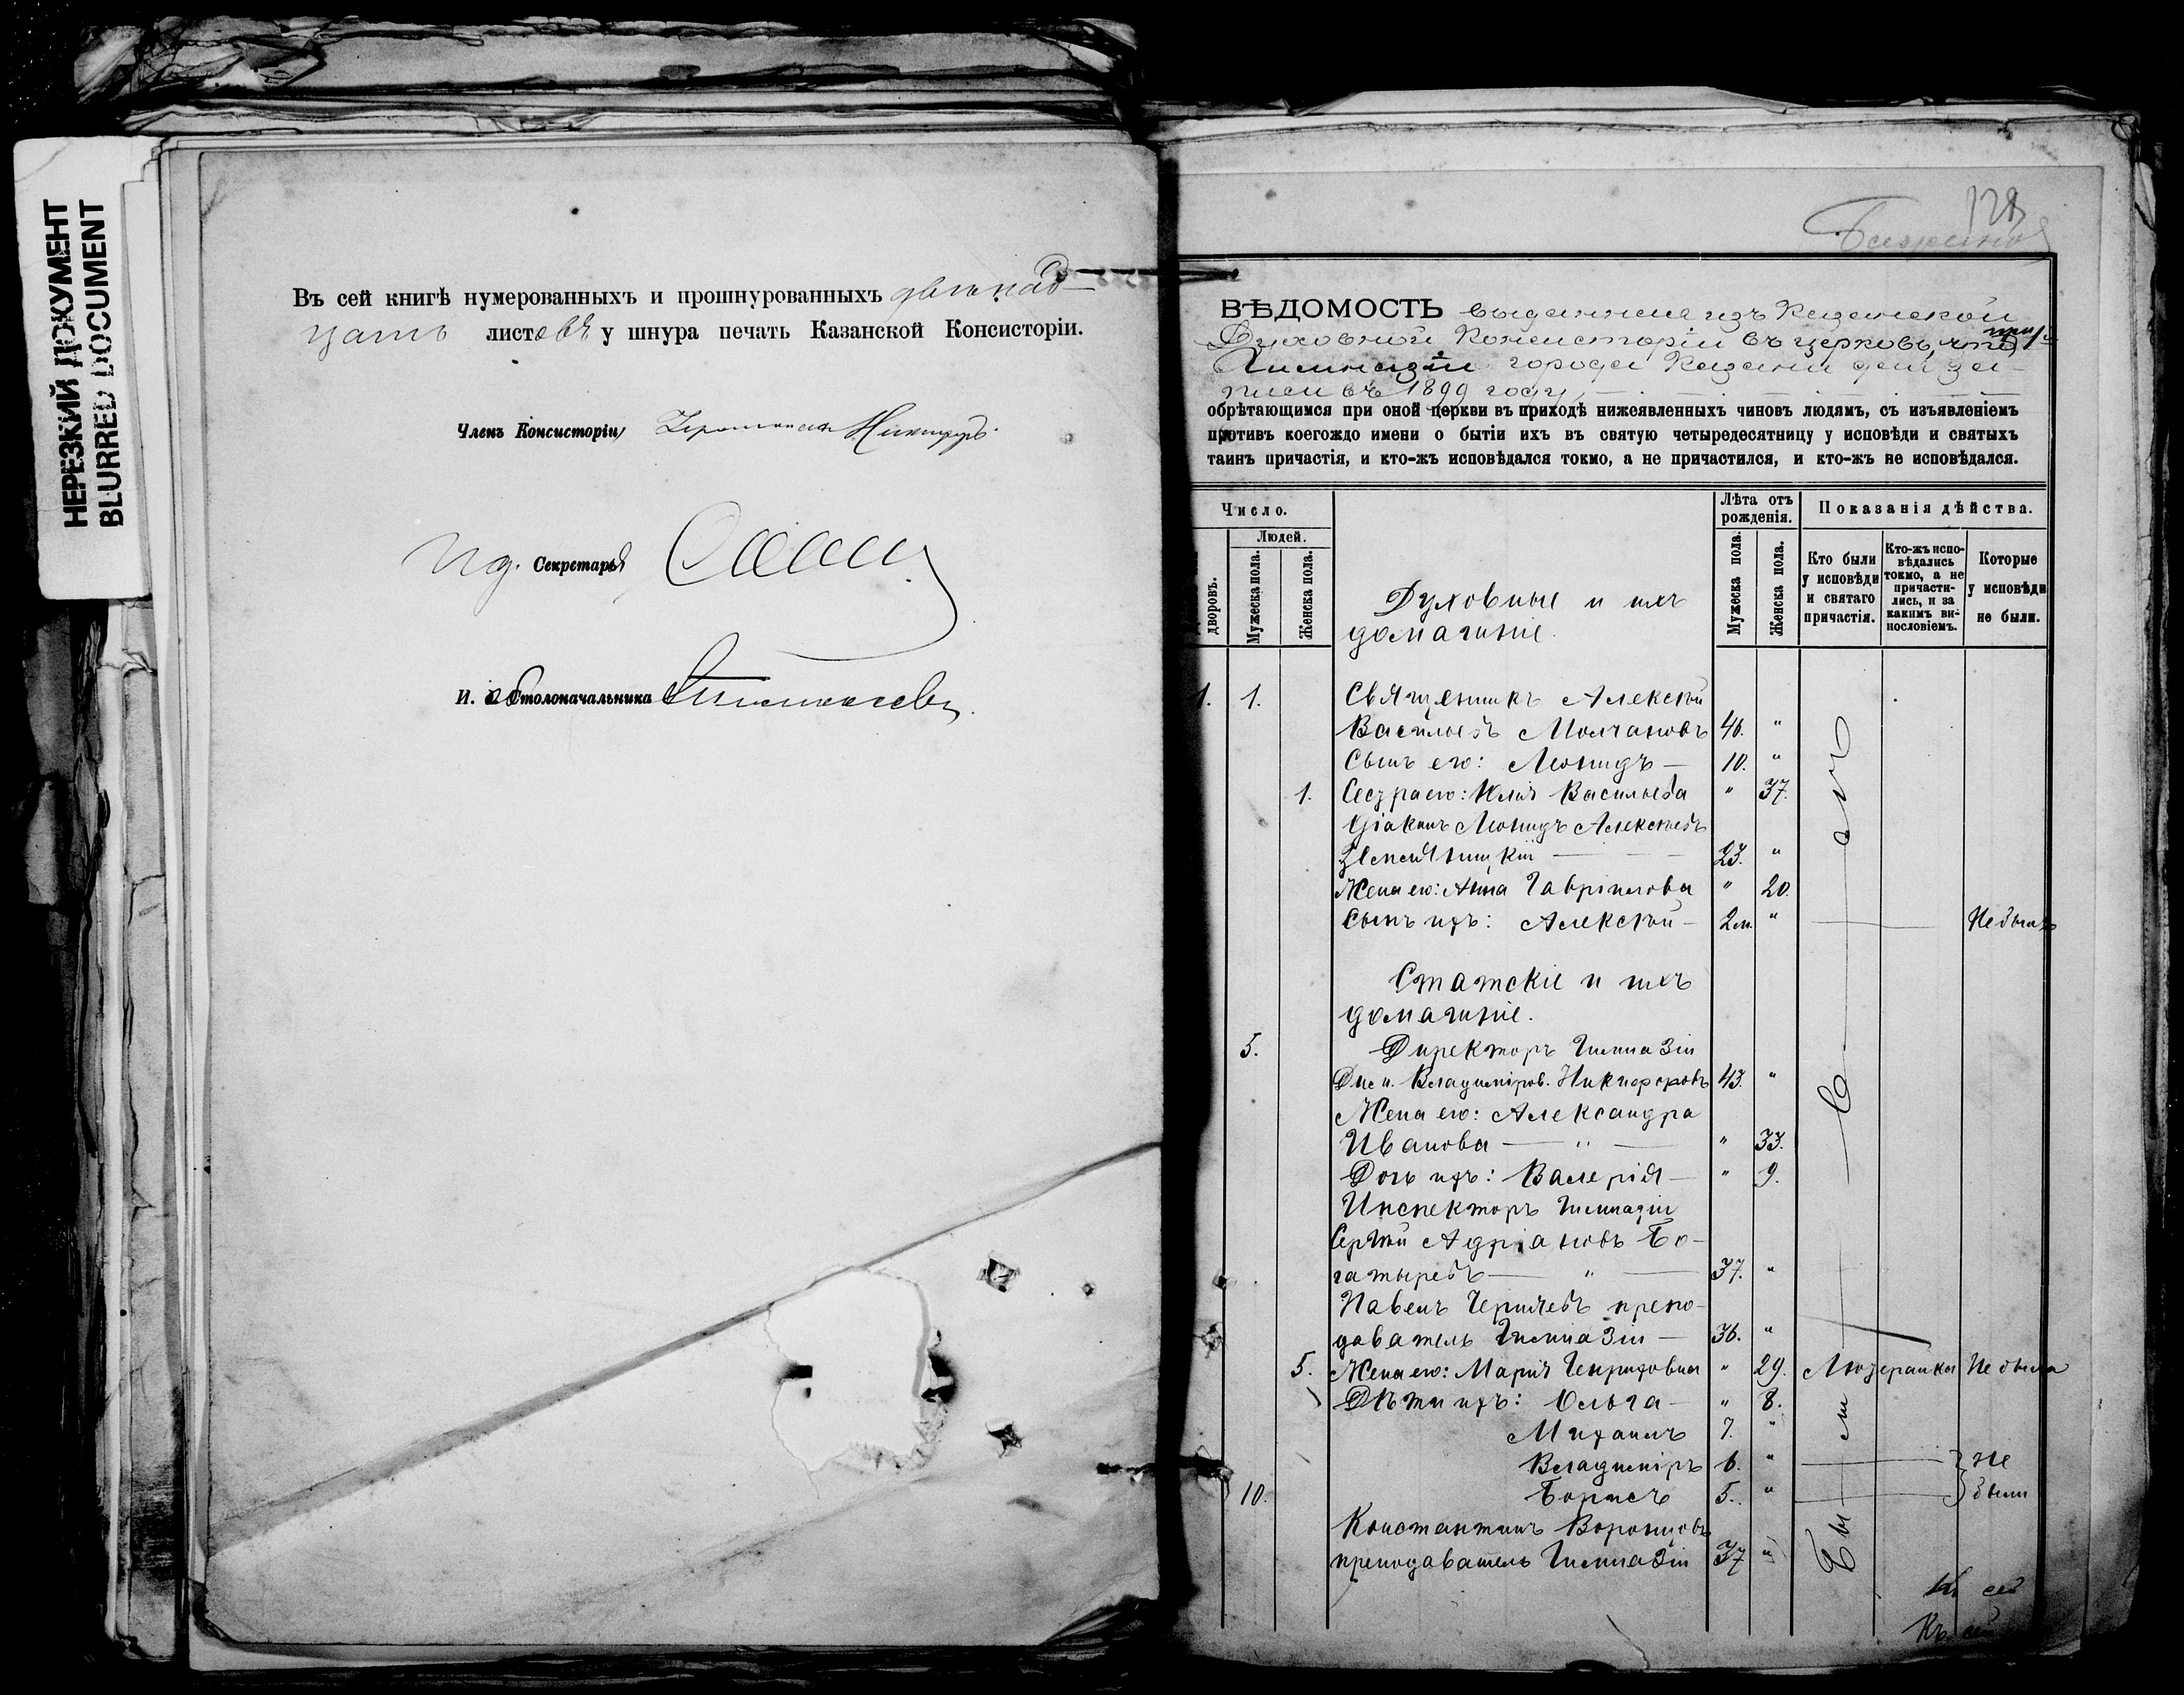 НЕРЕЗКИЙ ДОКУМЕНТ
BLURRED DOCUMENT
Въ сей книгѣ нумерованныхъ и прошнурованныхъ двѣнад-
цать листовъ у шнура печать Казанской Консисторіи.
Членъ Консисторіи,
Секретаря
И. об Столоначальника
128
ВѢДОМОСТЬ выданная изъ Казанской
Духовной Консисторіи въ церковь, что при 1й
Гимназіи города Казани для за-
писи въ 1899 году,
обрѣтающимся при оной церкви въ приходѣ нижеявленныхъ чиновъ людямъ, съ изъявленіемъ
противъ коегождо имени о бытіи ихъ въ святую четыредесятницу у исповѣди и святыхъ
таинъ причастія, и кто-жъ исповѣдался токмо, а не причастился, и кто-жъ не исповѣдался.
Число.
Людей.
дворовъ.
Мужеска пола.
Женска пола.
Лѣта отъ
рожденія.
Мужеска пола.
Женска пола.
Показанія дѣйства.
Кто были
у исповѣди
и святаго
причастія.
Кто-жъ испо-
вѣдались
токмо, а не
причасти-
лись, и за
какимъ ви-
нословіемъ.
Которые
у исповѣди
не были.
Духовные и ихъ
домашніе.
1. 1. Священникъ Алексѣй
Васильевъ Молчановъ 46. "
Сынъ его: Леонидъ — 10. "
1. Сестра его: Юлія Васильева " 37.
Діаконъ Леонидъ Алексѣевъ
23. "
Жена его: Анна Гавріилова " 20.
Сынъ ихъ: Алексѣй — 2 м. " Не былъ
Статскіе и ихъ
домашніе.
5. Директоръ Гимназіи
Владиміров. Никифоровъ 43. "
Жена его: Александра
Иванова — " — " 33.
Дочь ихъ: Валерія — " 9.
Инспекторъ Гимназіи
Сергѣй Адріановъ Бо-
гатыревъ — " — 37. "
Павелъ Черняевъ препо-
даватель Гимназіи — 36. "
5. Жена его: Марія Генриховна " 29. Лютеранка Не была
Дѣти ихъ: Ольга — " 8.
Михаилъ 7. "
Владиміръ 6. " Не
10. Борисъ 5. " были
Константинъ Воронцовъ
преподаватель Гимназіи 37 "
Къ сей